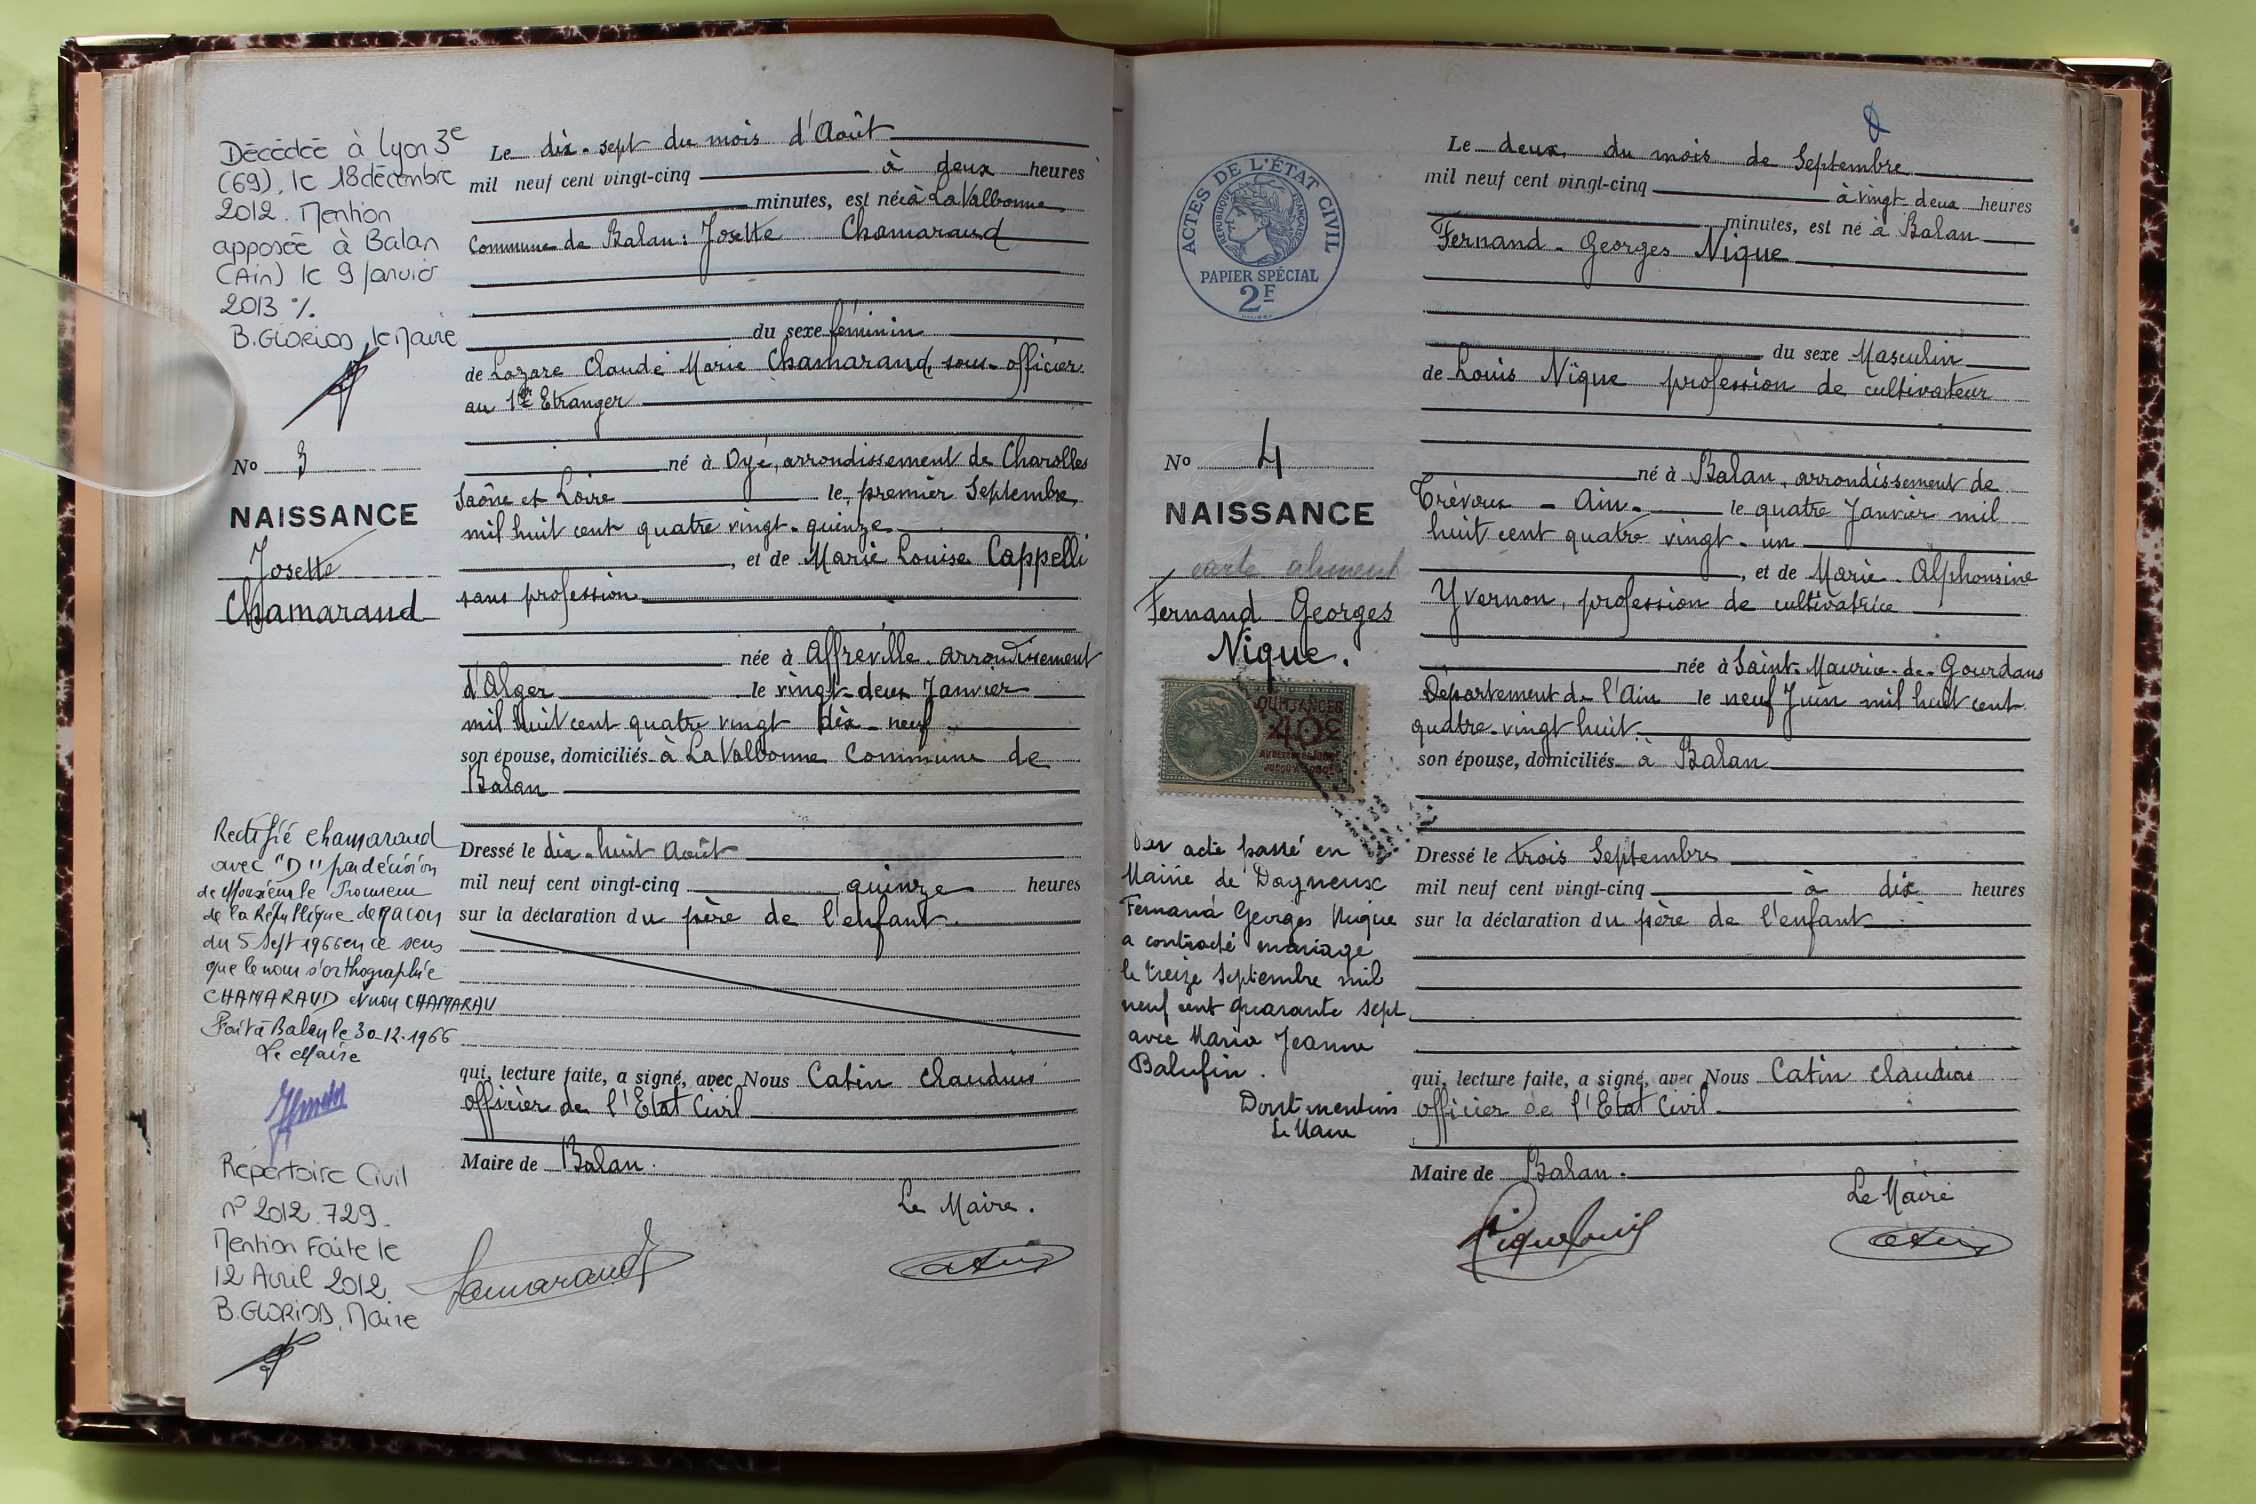 Décédée à Lyon 3e
(69), le 18 décembre
2012. Mention
apposée à Balan
(Ain) le 9 janvier
2013 %.
B. GLORIOD, le Maire
No 3
NAISSANCE
Josette
Chamaraud
Rectifié Chamaraud
avec "D" par décision
de Monsieur le Procureur
de la République de Macon
du 5 Sept 1966 en ce sens
que le nom s'orthographie
CHAMARAUD et non CHAMARAU
Fait à Balan le 30-12-1966
Le Maire
Répertoire Civil
n° 2012.729.
Mention Faite le
12 Avril 2012
B. GLORIOD, Maire
Le dix-sept du mois d'Août
mil neuf cent vingt-cinq à deux heures
minutes, est née à La Valbonne,
Commune de Balan: Josette Chamaraud
du sexe féminin
de Lazare Claude Marie Chamaraud, sous-officier
au 1er Etranger
né à Oyé, arrondissement de Charolles
Saône et Loire le premier Septembre
mil huit cent quatre vingt-quinze
, et de Marie Louise Cappelli
sans profession
née à Affreville arrondissement
d'Alger le vingt-deux Janvier
mil huit cent quatre vingt dix-neuf
son épouse, domiciliés à La Valbonne Commune de
Balan
Dressé le dix-huit Août
mil neuf cent vingt-cinq quinze heures
sur la déclaration du père de l'enfant
qui, lecture faite, a signé, avec Nous Catin Claudius
Officier de l'Etat Civil
Maire de Balan.
Le Maire.
Chamaraud
Catin
ACTES DE L'ÉTAT CIVIL
RÉPUBLIQUE FRANÇAISE
PAPIER SPÉCIAL
2F
No 4
NAISSANCE
carte aliment
Fernand Georges
Nique.
QUITTANCES
40c
Par acte passé en
Mairie de Dagneux
Fernand Georges Nique
a contracté mariage
le treize Septembre mil
neuf cent quarante sept
avec Maria Jeanne
Balufin.
Dont mention
Le Maire
Le deux du mois de Septembre
mil neuf cent vingt-cinq à vingt deux heures
minutes, est né à Balan
Fernand-Georges Nique
du sexe Masculin
de Louis Nique profession de cultivateur
né à Balan, arrondissement de
Trévoux - Ain - le quatre Janvier mil
huit cent quatre vingt-un
, et de Marie-Alphonsine
Yvernon, profession de cultivatrice
née à Saint-Maurice-de-Gourdans
Département de l'Ain le neuf Juin mil huit cent
quatre-vingt huit
son épouse, domiciliés à Balan
Dressé le trois Septembre
mil neuf cent vingt-cinq à dix heures
sur la déclaration du père de l'enfant
qui, lecture faite, a signé, avec Nous Catin Claudius
Officier de l'Etat Civil
Maire de Balan.
Le Maire
Nique Louis
Catin